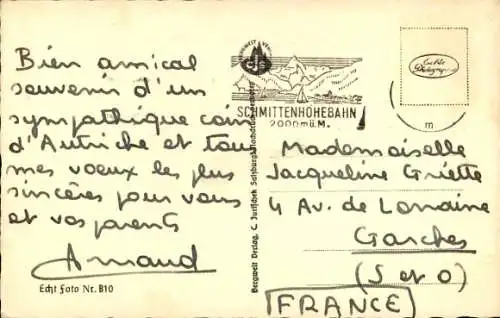 Bien amical
souvenir d'un
sympathique coin
d'Autriche et tous
mes voeux les plus
sincères pour vous
et vos parents
Arnaud
Echt Foto Nr. B10
SCHMITTENHÖHEBAHN
2000 m ü. M.
Echte
Photographie
m
Mademoiselle
Jacqueline Griette
4 Av. de Lorraine
Garches
(S et O)
FRANCE
Bergwelt Verlag, C. Jurischek